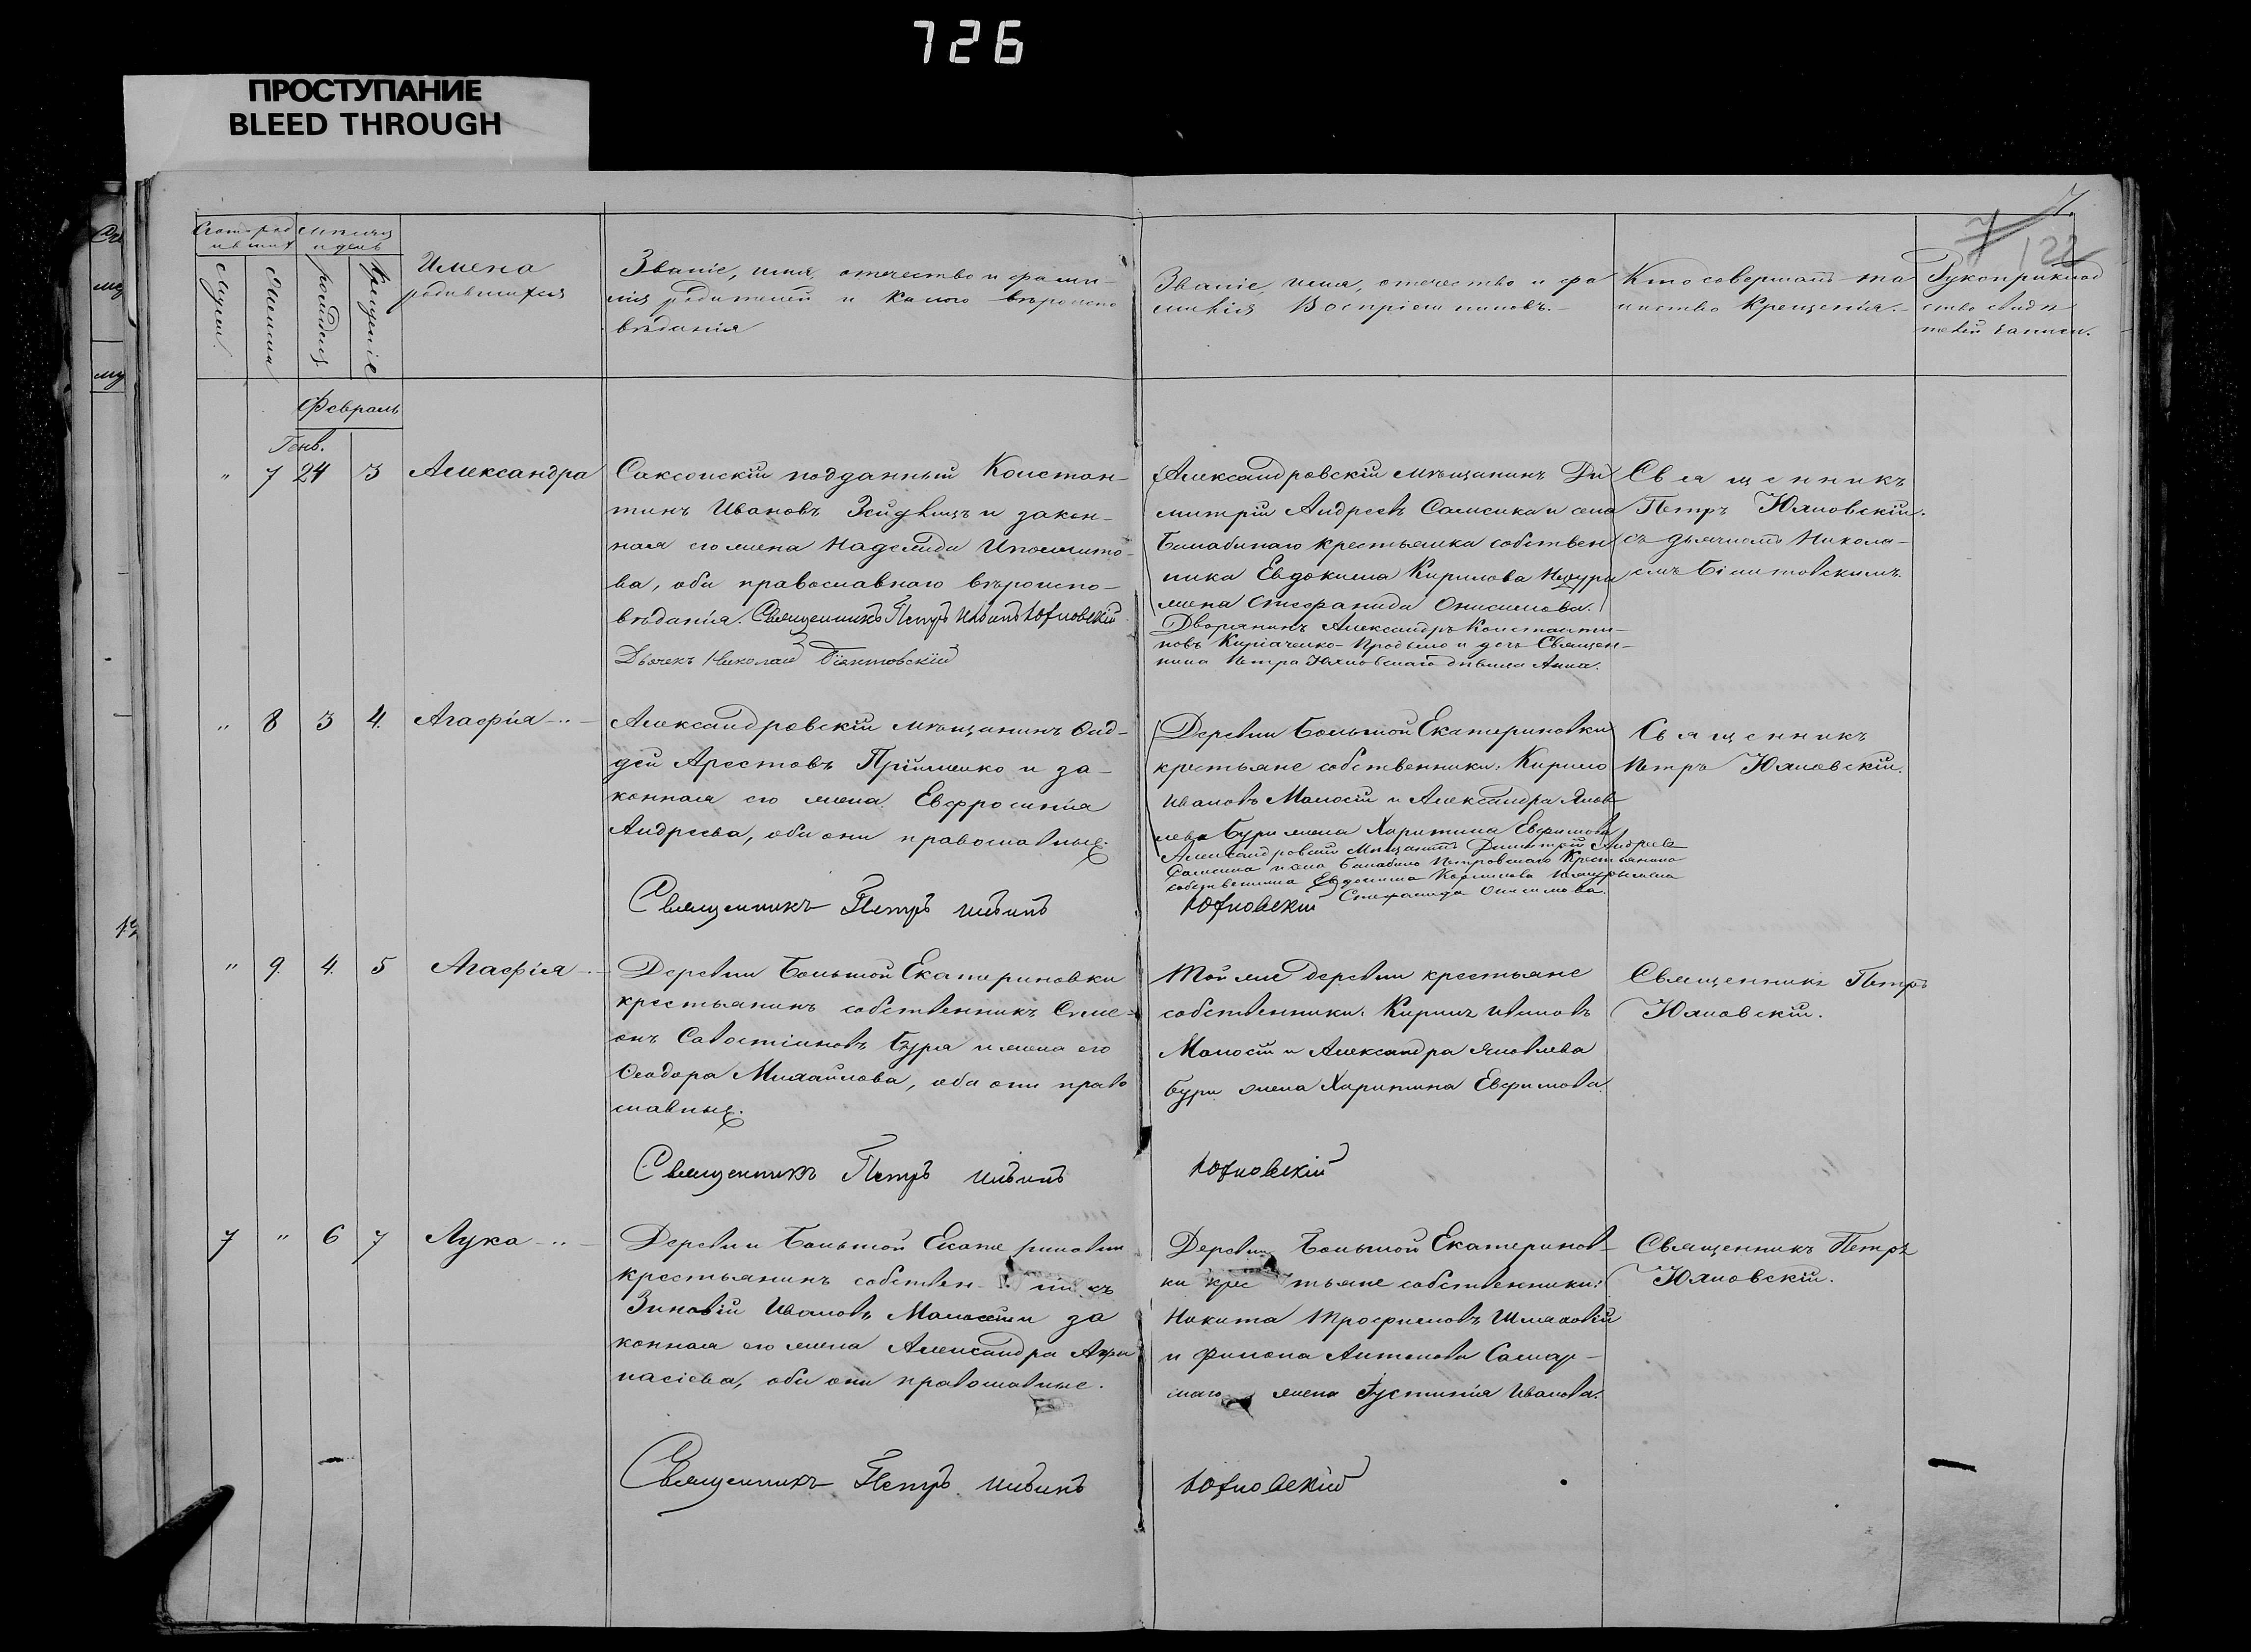 726
ПРОСТУПАНИЕ
BLEED THROUGH
7.
7
122
Счетъ род
ившихъ
Мужеска
Женска
Мѣсяцъ
и день
рожденія
крещеніе
Имена
родившихся
Званіе, имя, отечество и фами-
лія родителей и какого вѣроиспо
вѣданія
Званіе, имя, отечество и фа
милія Воспріемниковъ.-
Кто совершалъ та
инство Крещенія.-
Рукоприклад
ство свидѣ
телей записи.
Февраль
Генв.
" 7 24 3 Александра
Саксонскій подданный Констан-
тинъ Ивановъ и закон-
ная его жена Надежда Ипполито-
ва, оба православнаго вѣроиспо-
вѣданія. Священникъ Петръ Ильинъ Южновскій
Дьячекъ Николай
Александровскій мѣщанинъ Ди
митрій Андреевъ Самсика и села
Балабинаго крестьянина собствен
ника Евдокима Кирилова
жена Стефанида Онисимова.
Дворянинъ Александръ Константи-
новъ Киріаченко- и дочь Священ-
ника Петра Южновскаго дѣвица Анна.
Священникъ
Петръ Южновскій.
съ дьячкомъ Никола-
емъ
" 8 3 4. Агафія -..-
Александровскій мѣщанинъ Фад-
дей Арестовъ Прійменко и за-
конная его жена Евфросинія
Андреева, оба они православные.
Священникъ Петръ Ильинъ
Южновскій
Деревни Большой Екатериновки
крестьяне собственники: Кирилъ
Ивановъ Малосій и Александра Яков
лева Бури жена Харитина Евфимова
Александровскій Мѣщанинъ Димитрій Андреевъ
Самсика и села Балабино Петровскаго Крестьянина
собственника Евдокима Кирилова жена
Стефанида Онисимова.
Священникъ
Петръ Южновскій.
" 9. 4. 5 Агафія -..-
Деревни Большой Екатериновки
крестьянинъ собственникъ Симе-
онъ Савостіановъ Буря и жена его
Феодора Михайлова, оба они право
славные.
Священникъ Петръ Ильинъ
Южновскій
Той же деревни крестьяне
собственники: Кирилъ Ивановъ
Малосій и Александра Яковлева
Бури жена Харитина Евфимова
Священникъ Петръ
Южновскій.
7 " 6 7 Лука -..-
Деревни Большой Екатериновки
крестьянинъ собственникъ
Зиновій Ивановъ Малосій и за
конная его жена Александра Афа
насіева, оба они православные.
Священникъ Петръ Ильинъ
Южновскій
Деревни Большой Екатеринов-
ки крестьяне собственники:
Никита Трофимовъ
и Филипа Антонова Самар-
скаго жена Іустинія Иванова.
Священникъ Петръ
Южновскій.